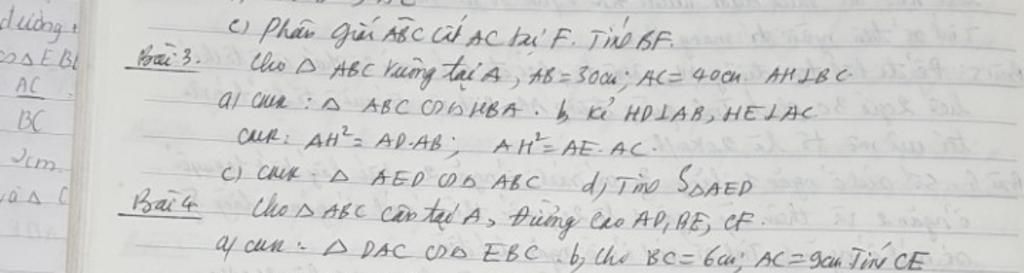 đường
c) Phân giác ABC cắt AC tại F. Tính BF.
∽ΔEB
Bài 3. Cho Δ ABC vuông tại A, AB = 30cm; AC = 40cm. AH⊥BC.
AC
a) CMR: Δ ABC ∽Δ HBA. b, Kẻ HD⊥AB, HE⊥AC
BC
CMR: AH² = AD.AB; AH² = AE.AC.
2cm
c) CMR: Δ AED ∽Δ ABC d, Tính SΔAED
và Δ C
Bài 4 Cho Δ ABC cân tại A, Đường cao AD, BE, CF.
a) CMR: Δ DAC ∽Δ EBC b, Cho BC = 6cm; AC = 9cm Tính CE